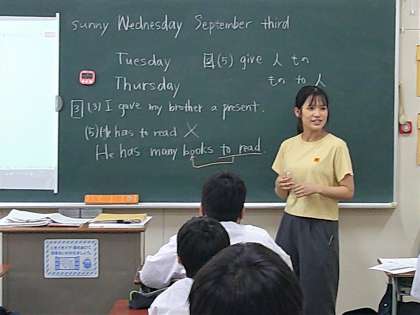 sunny Wednesday September third
Tuesday
Thursday
2 (5) give 人 もの
もの to 人
3 (3) I gave my brother a present.
(5) He has to read ×
He has many books to read.